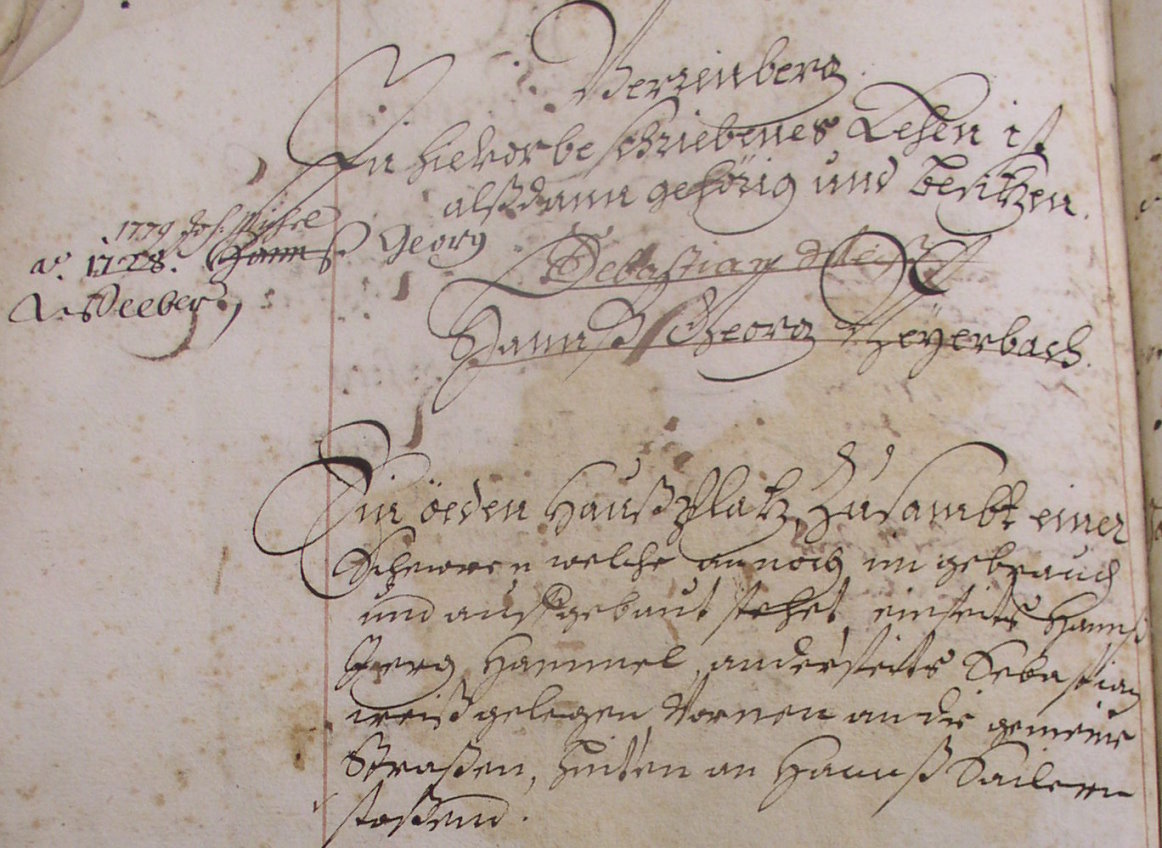 Verrenberg
Ein hievorbeschriebenes Lehen ist
alßdann gehörig und besitzen.
1779 Jos. Michel
ao. 1728. Hannß Georg
Weeber
Sebastian Weiß
Hannß Georg Meyerbach.
Ein öeden Haußplatz, Zusambt einer
Schewren welche annoch im gebrauch
und aussgebaut stehet, einseits Hannß
Jerg Hammel, anderseits Sebastian
weiß gelegen Vornen an die gemeine
Straßen, hinten an Hannß Sailern
stoßend.